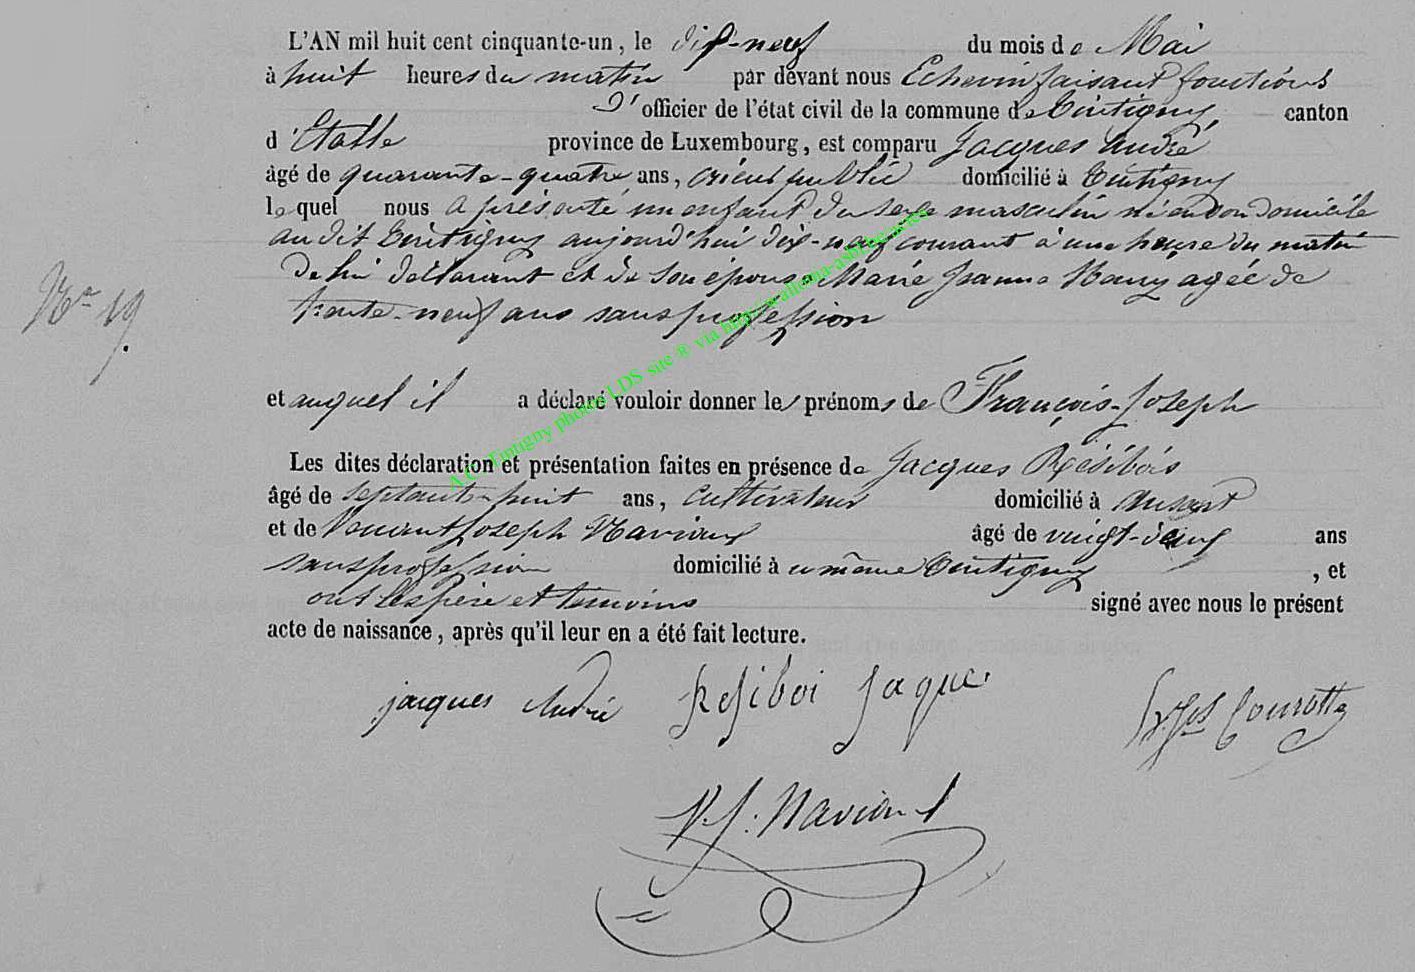 L'AN mil huit cent cinquante-un, le dix-neuf du mois de Mai
à huit heures du matin par devant nous Echevin faisant fonctions
d'officier de l'état civil de la commune de Tintigny, canton
d'Etalle province de Luxembourg, est comparu Jacques André
âgé de quarante-quatre ans, crieur public domicilié à Tintigny
lequel nous a présenté un enfant du sexe masculin né en son domicile
audit Tintigny aujourd'hui dix-neuf courant à une heure du matin
de lui déclarant et de son épouse Marie Jeanne Henry agée de
trente-neuf ans sans profession
No 19.
et auquel il a déclaré vouloir donner les prénoms de François-Joseph
Les dites déclaration et présentation faites en présence de Jacques Résibois
âgé de septante-huit ans, cultivateur domicilié à Ansart
et de Venant Joseph Naviaux âgé de vingt-deux ans
sans profession domicilié à même Tintigny, et
ont les père et témoins signé avec nous le présent
acte de naissance, après qu'il leur en a été fait lecture.
jacques André Resiboi Jaque
V. J. Naviaux
A.C. Tintigny photos LDS site ® via